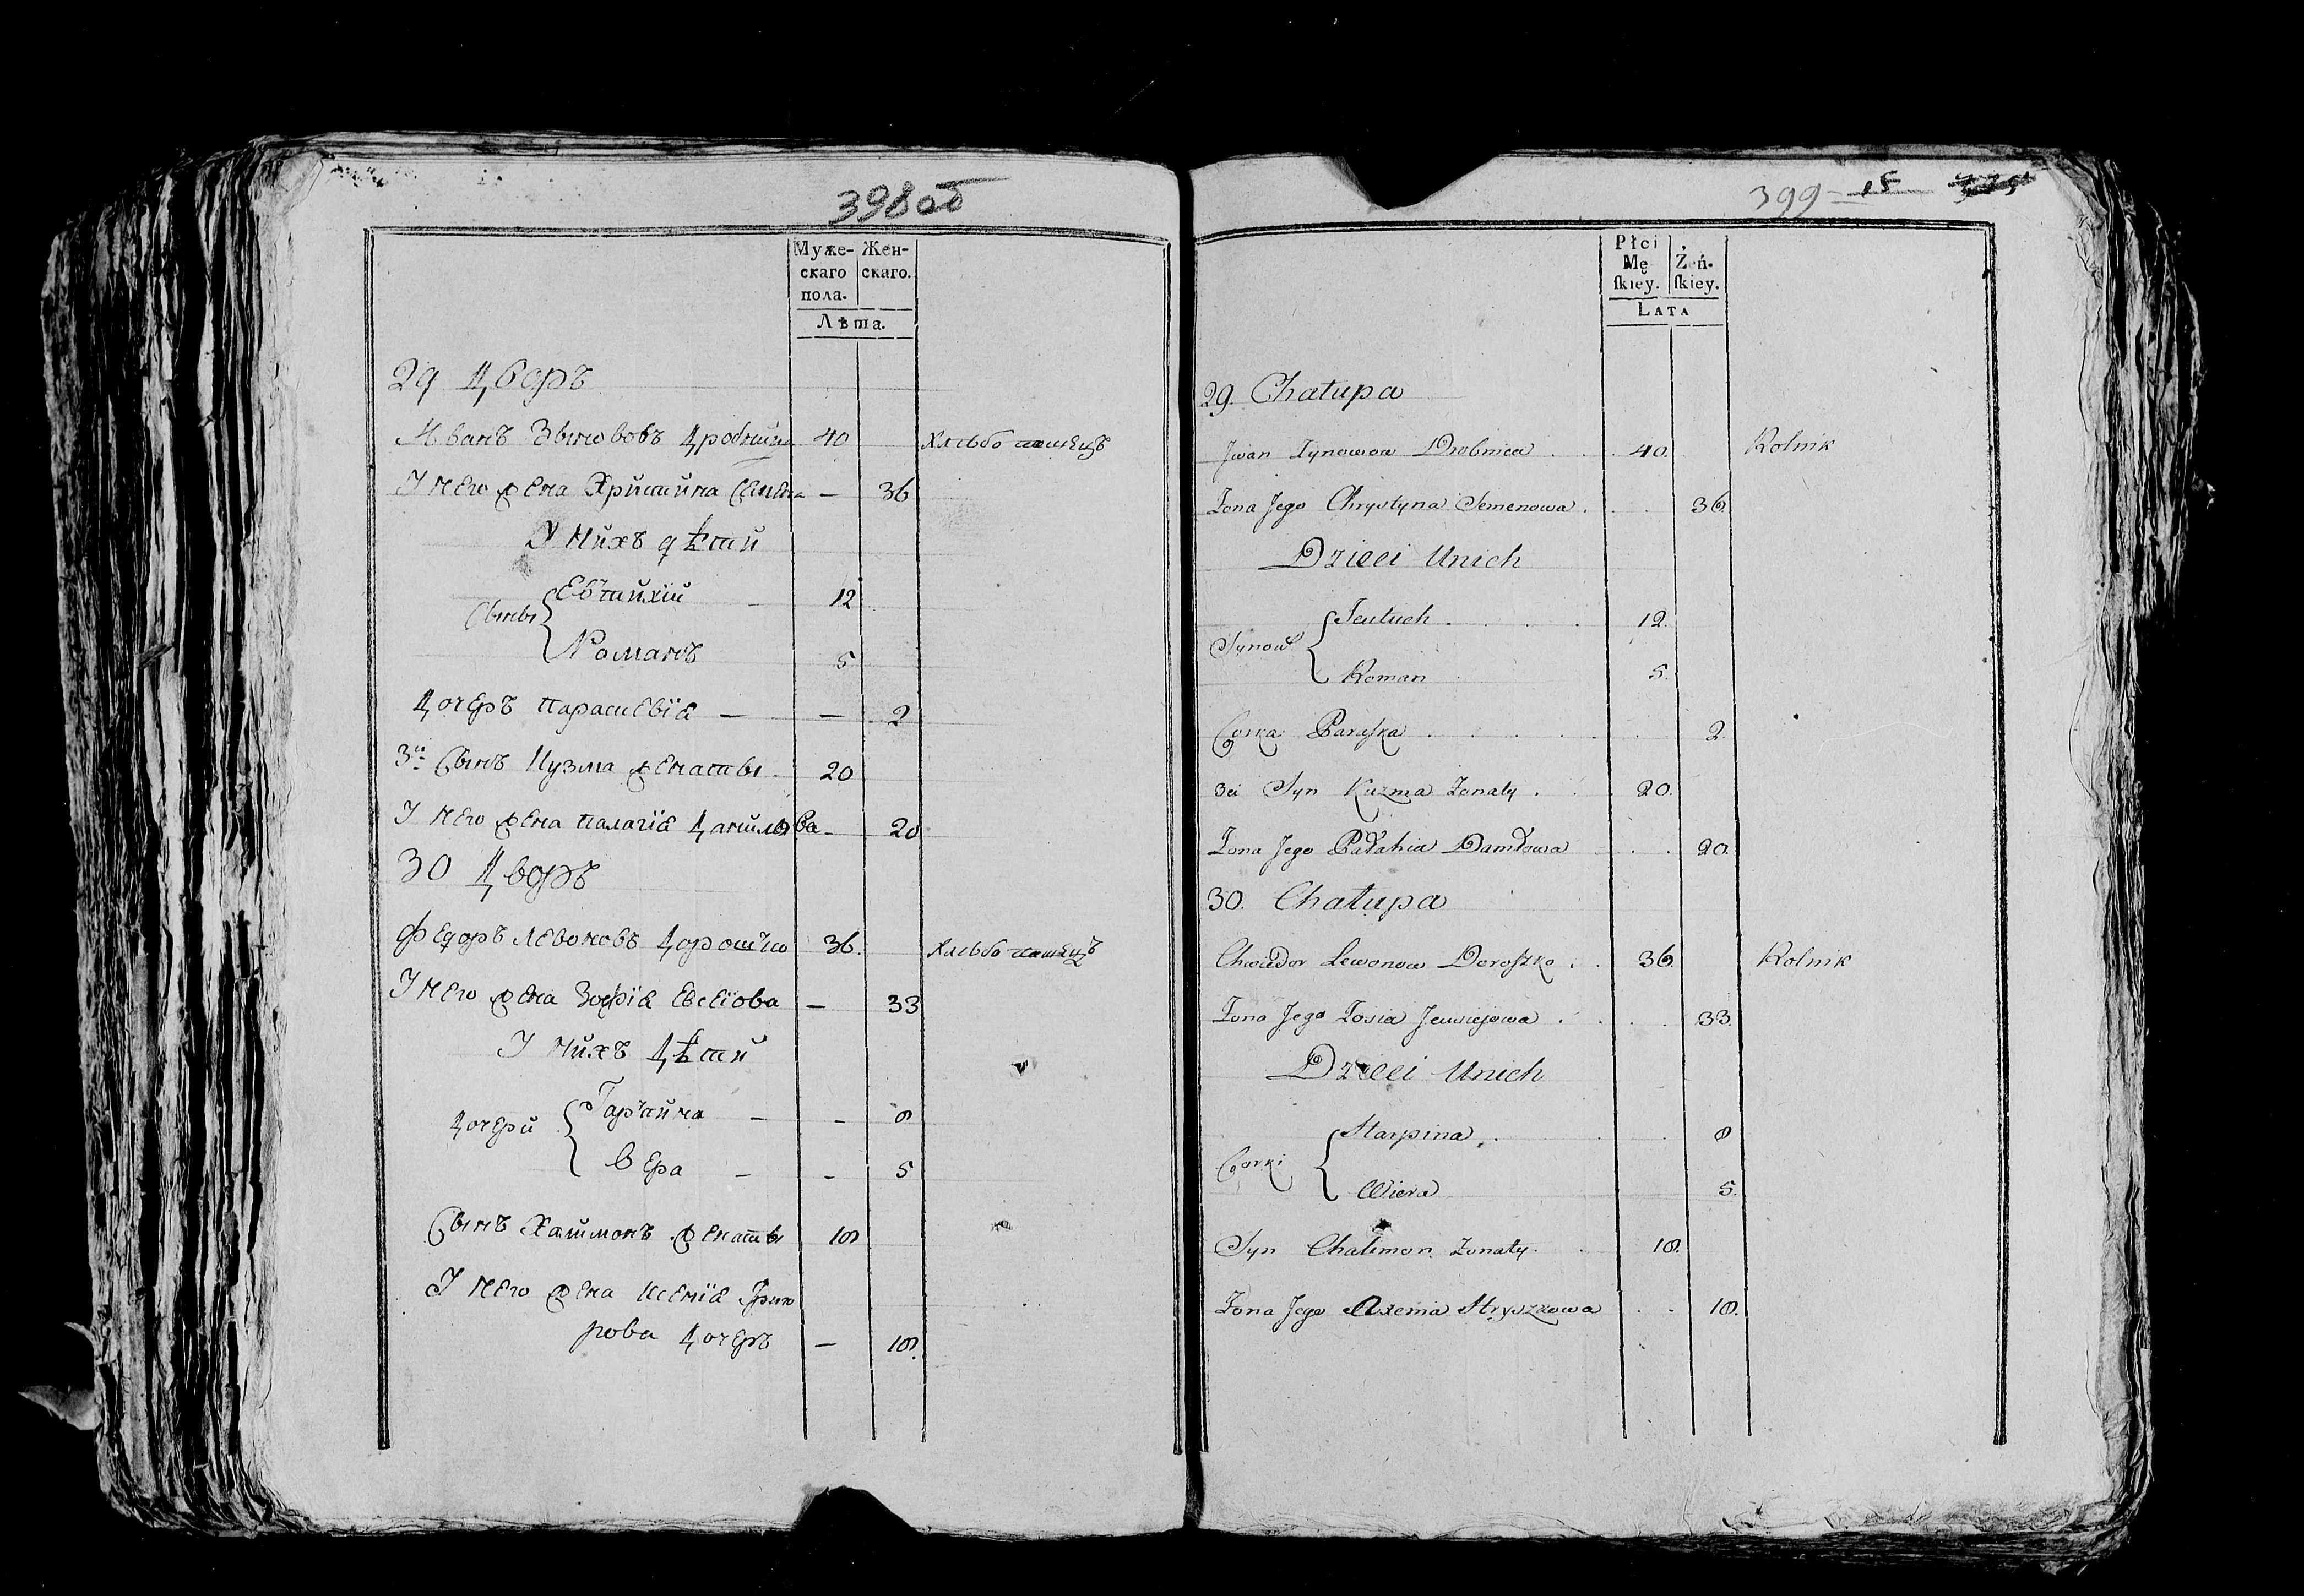 398 об
Муже-
скаго
пола.
Жен-
скаго.
Лѣта.
29 Дворъ
Иванъ Зынововъ Дробница 40 Хлѣбопашецъ
У него жена Христина — 36
У нихъ дѣти
Сыны { Евтихій — 12
Романъ 5
Дочеръ Параскевія — — 2
3й Сынъ Кузма женаты 20
У него жена Палагія Данилова — 20
30 Дворъ
Федоръ Левоновъ Дорошко 36. Хлѣбопашецъ
У него жена Зофія Евсеіова — 33
У нихъ Дѣти
Дочери { Гарпина — - 8
Вера — - 5
Сынъ Халимонъ женаты 18
У него жена Ксенія Григо
рова Дочеръ — 18.
399 15
Płci
Mę
ſkiey.
Żeń-
ſkiey.
LATA
29. Chałupa
Jwan Zynowow Drobnica 40. Rolnik
Zona Jego Chrystyna Semenowa 36.
Dzieci Unich
Synow { Jeutuch 12.
Roman 5.
Corka Paraſka 2.
3ci Syn Kuzma Zonaty 20.
Zona Jego Pałahia Daniłowa 20.
30. Chałupa
Chwedor Lewonow Doroſzko 36. Rolnik
Zona Jego Zosia Jewsiejowa 33.
Dzieci Unich
Corki { Harpina 8
Wiera 5.
Syn Chalimon Zonaty 18.
Zona Jego Axenia Hryszkowa 18.